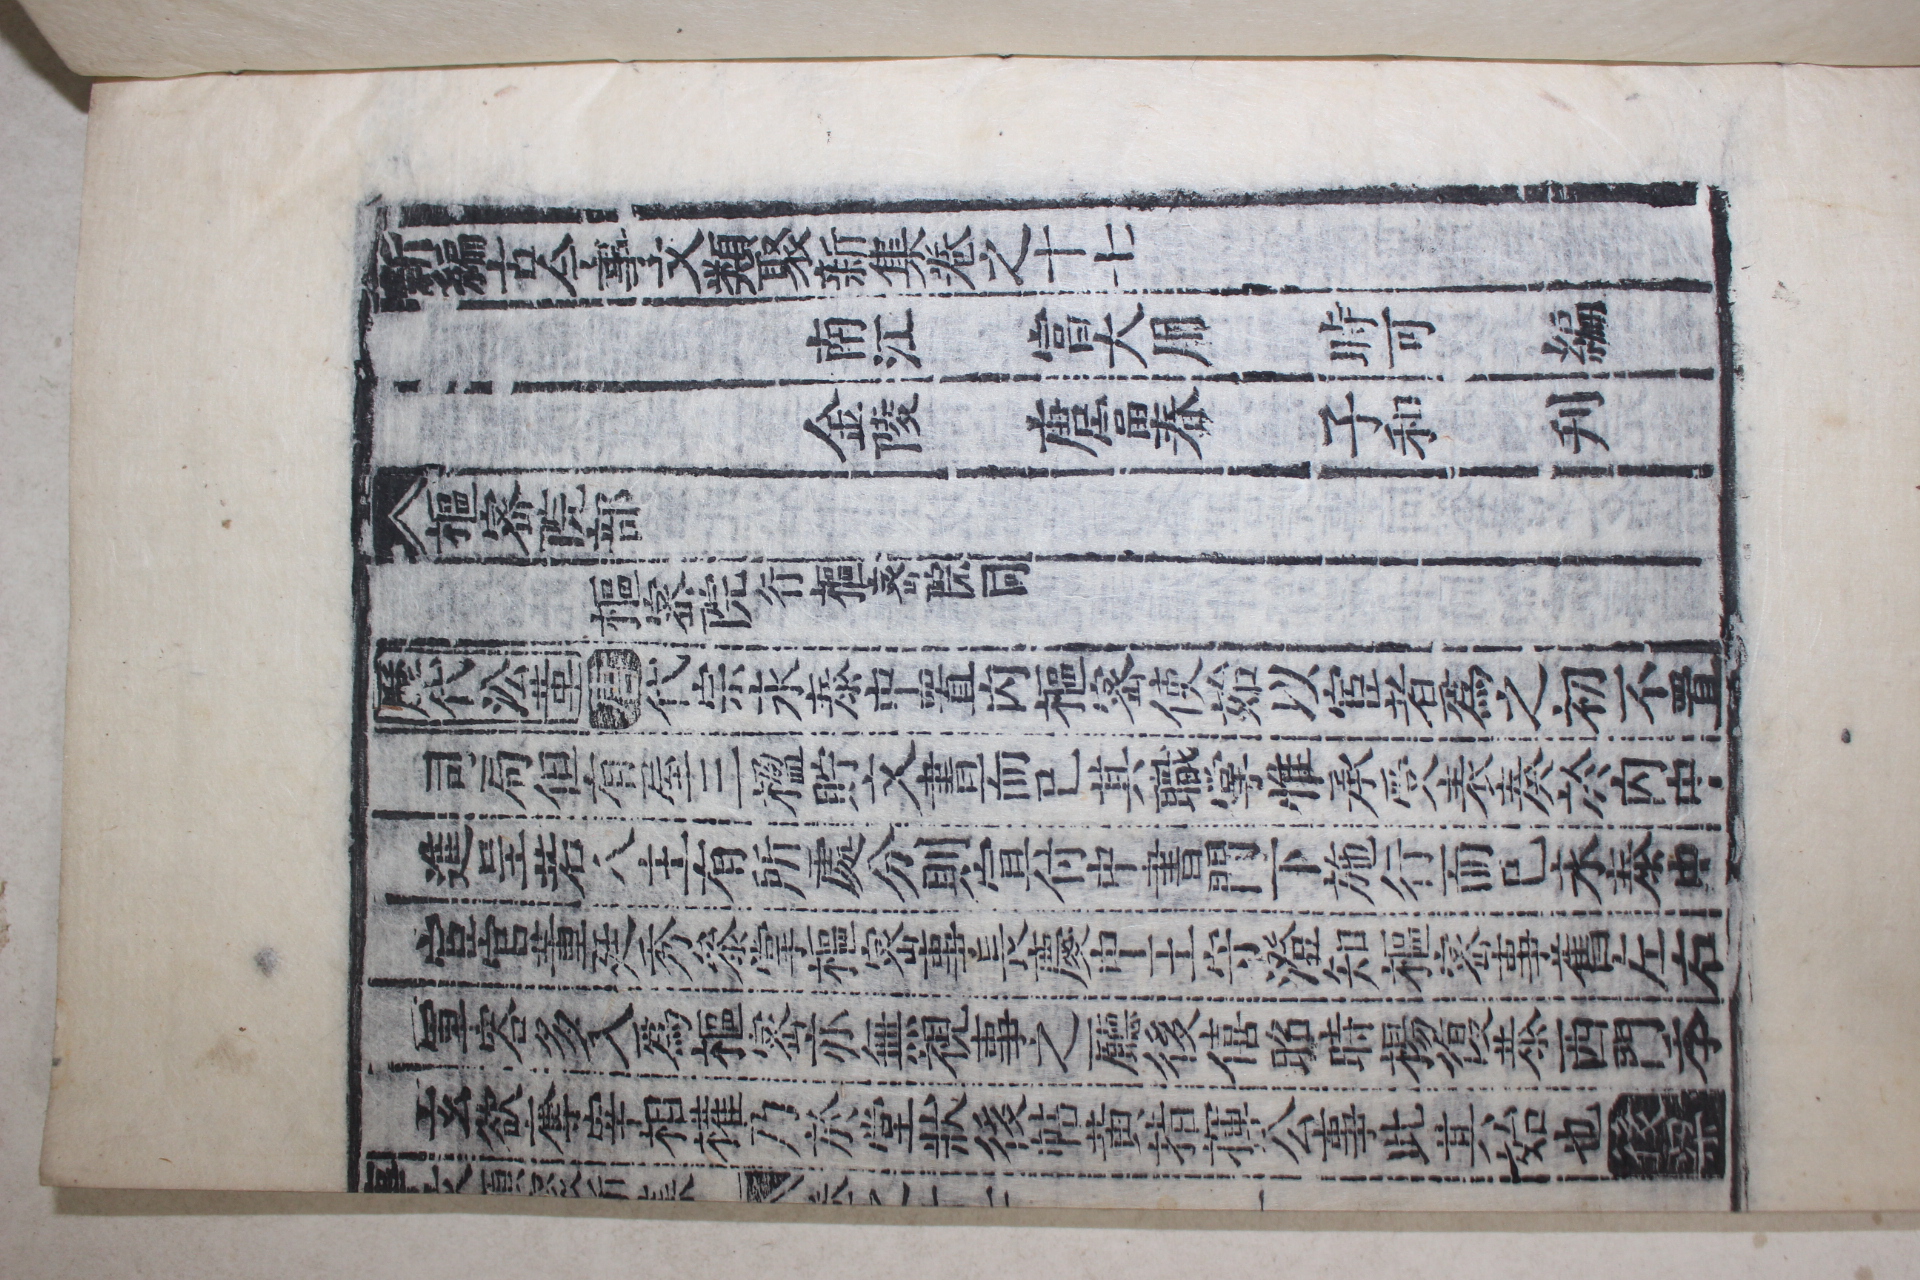 新編古今事文類聚新集卷之十七
南江 富大用 時可 編
金陵 唐富春 子和 刋
樞密院部
樞密院 行樞密院同
歷代沿革 唐代宗永泰中置内樞密使始以宦者爲之初不置
司局但有屋三楹貯文書而已其職掌惟承受表奏於内中
進呈若人主有所處分則宣付中書門下施行而已永泰中
宦官董廷秀叅掌樞密事長慶中王守澄知樞密事舊左右
軍容多入爲樞密亦無視事之廳後僖昭時楊復恭西門季
玄欲奪宰相權乃於堂狀後帖黃指揮公事此其始也
事文類聚新集 卷之十七 一